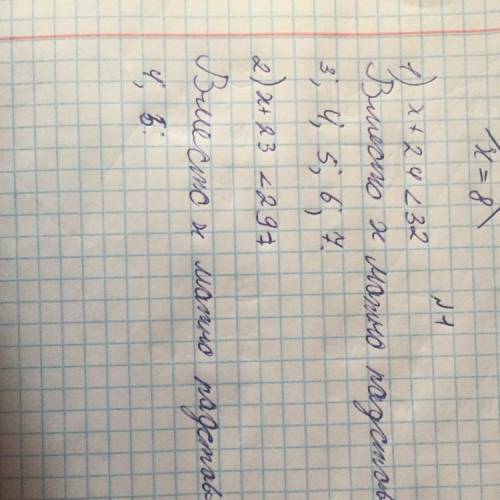 x = 8
№1
1) x + 24 < 32
Вместо x можно подстав
3; 4; 5; 6; 7.
2) x + 23 < 297
Вместо x можно подстав
4, 5.